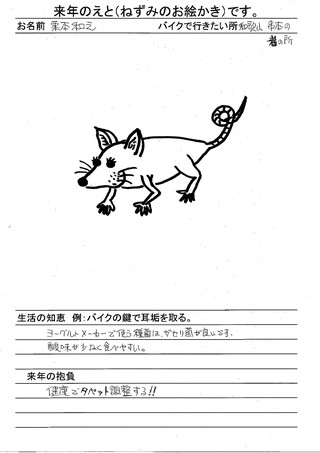 来年のえと(ねずみのお絵かき)です。
お名前 栗本和之 バイクで行きたい所 和歌山 串本の
岩の所
生活の知恵 例:バイクの鍵で耳垢を取る。
ヨーグルトメーカーで使う種菌は、ガセリ菌が良いです.
酸味が少なく食べやすい。
来年の抱負
健康でタペット調整する!!